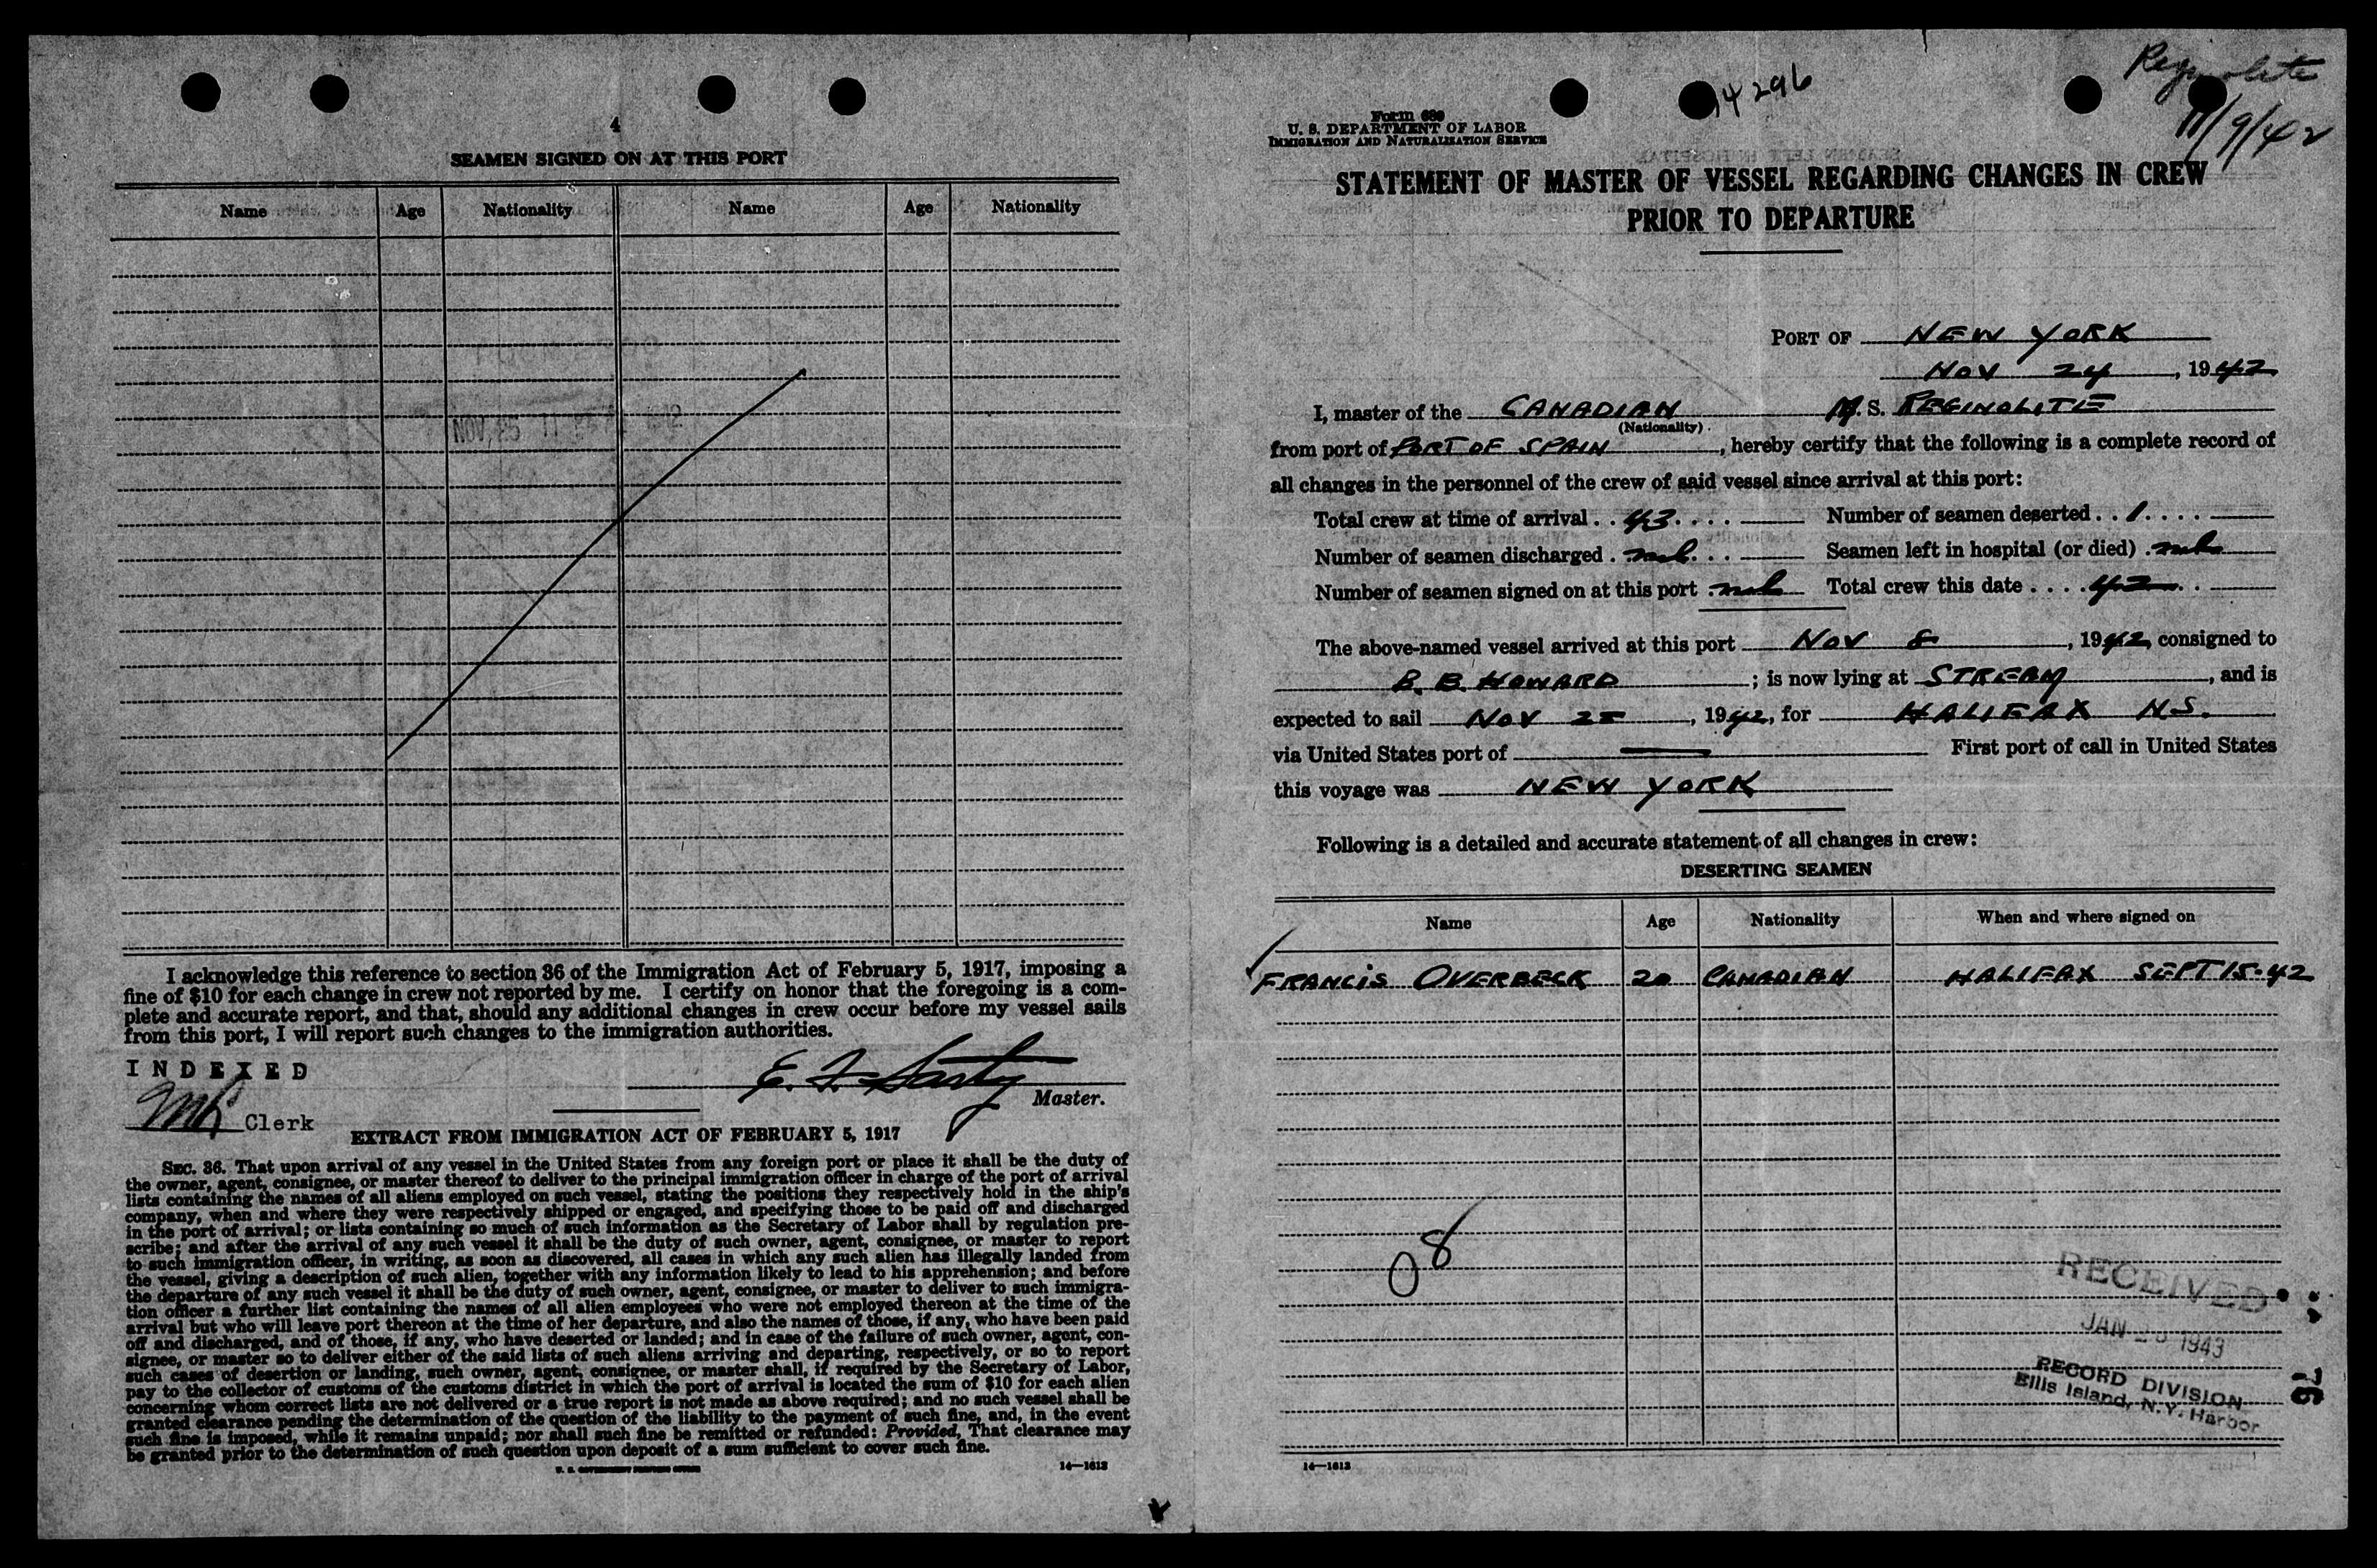 4
SEAMEN SIGNED ON AT THIS PORT
Name Age Nationality Name Age Nationality
NOV 25 11
I acknowledge this reference to section 36 of the Immigration Act of February 5, 1917, imposing a
fine of $10 for each change in crew not reported by me. I certify on honor that the foregoing is a com-
plete and accurate report, and that, should any additional changes in crew occur before my vessel sails
from this port, I will report such changes to the immigration authorities.
INDEXED
Clerk
Master.
EXTRACT FROM IMMIGRATION ACT OF FEBRUARY 5, 1917
SEC. 36. That upon arrival of any vessel in the United States from any foreign port or place it shall be the duty of
the owner, agent, consignee, or master thereof to deliver to the principal immigration officer in charge of the port of arrival
lists containing the names of all aliens employed on such vessel, stating the positions they respectively hold in the ship's
company, when and where they were respectively shipped or engaged, and specifying those to be paid off and discharged
in the port of arrival; or lists containing so much of such information as the Secretary of Labor shall by regulation pre-
scribe; and after the arrival of any such vessel it shall be the duty of such owner, agent, consignee, or master to report
to such immigration officer, in writing, as soon as discovered, all cases in which any such alien has illegally landed from
the vessel, giving a description of such alien, together with any information likely to lead to his apprehension; and before
the departure of any such vessel it shall be the duty of such owner, agent, consignee, or master to deliver to such immigra-
tion officer a further list containing the names of all alien employees who were not employed thereon at the time of the
arrival but who will leave port thereon at the time of her departure, and also the names of those, if any, who have been paid
off and discharged, and of those, if any, who have deserted or landed; and in case of the failure of such owner, agent, con-
signee, or master so to deliver either of the said lists of such aliens arriving and departing, respectively, or so to report
such cases of desertion or landing, such owner, agent, consignee, or master shall, if required by the Secretary of Labor,
pay to the collector of customs of the customs district in which the port of arrival is located the sum of $10 for each alien
concerning whom correct lists are not delivered or a true report is not made as above required; and no such vessel shall be
granted clearance pending the determination of the question of the liability to the payment of such fine, and, in the event
such fine is imposed, while it remains unpaid; nor shall such fine be remitted or refunded: Provided, That clearance may
be granted prior to the determination of such question upon deposit of a sum sufficient to cover such fine.
U. S. GOVERNMENT PRINTING OFFICE 14—1613
Reginolite
11/9/42
14296
Form 689
U. S. DEPARTMENT OF LABOR
IMMIGRATION AND NATURALIZATION SERVICE
STATEMENT OF MASTER OF VESSEL REGARDING CHANGES IN CREW
PRIOR TO DEPARTURE
PORT OF NEW YORK
NOV 24, 1942
I, master of the CANADIAN M. S. REGINOLITE
(Nationality)
from port of PORT OF SPAIN, hereby certify that the following is a complete record of
all changes in the personnel of the crew of said vessel since arrival at this port:
Total crew at time of arrival . . 43 . . . . Number of seamen deserted . . 1 . . . .
Number of seamen discharged . nil . . . Seamen left in hospital (or died) . nil
Number of seamen signed on at this port . nil Total crew this date . . . . 42 . .
The above-named vessel arrived at this port NOV 8, 1942, consigned to
B. B. HOWARD ; is now lying at STREAM, and is
expected to sail NOV 25, 1942, for HALIFAX N.S.
via United States port of — First port of call in United States
this voyage was NEW YORK
Following is a detailed and accurate statement of all changes in crew:
DESERTING SEAMEN
Name Age Nationality When and where signed on
FRANCIS OVERBECK 20 CANADIAN HALIFAX SEPT 15-42
08
RECEIVED
JAN 1943
RECORD DIVISION
Ellis Island, N.Y. Harbor
14—1613